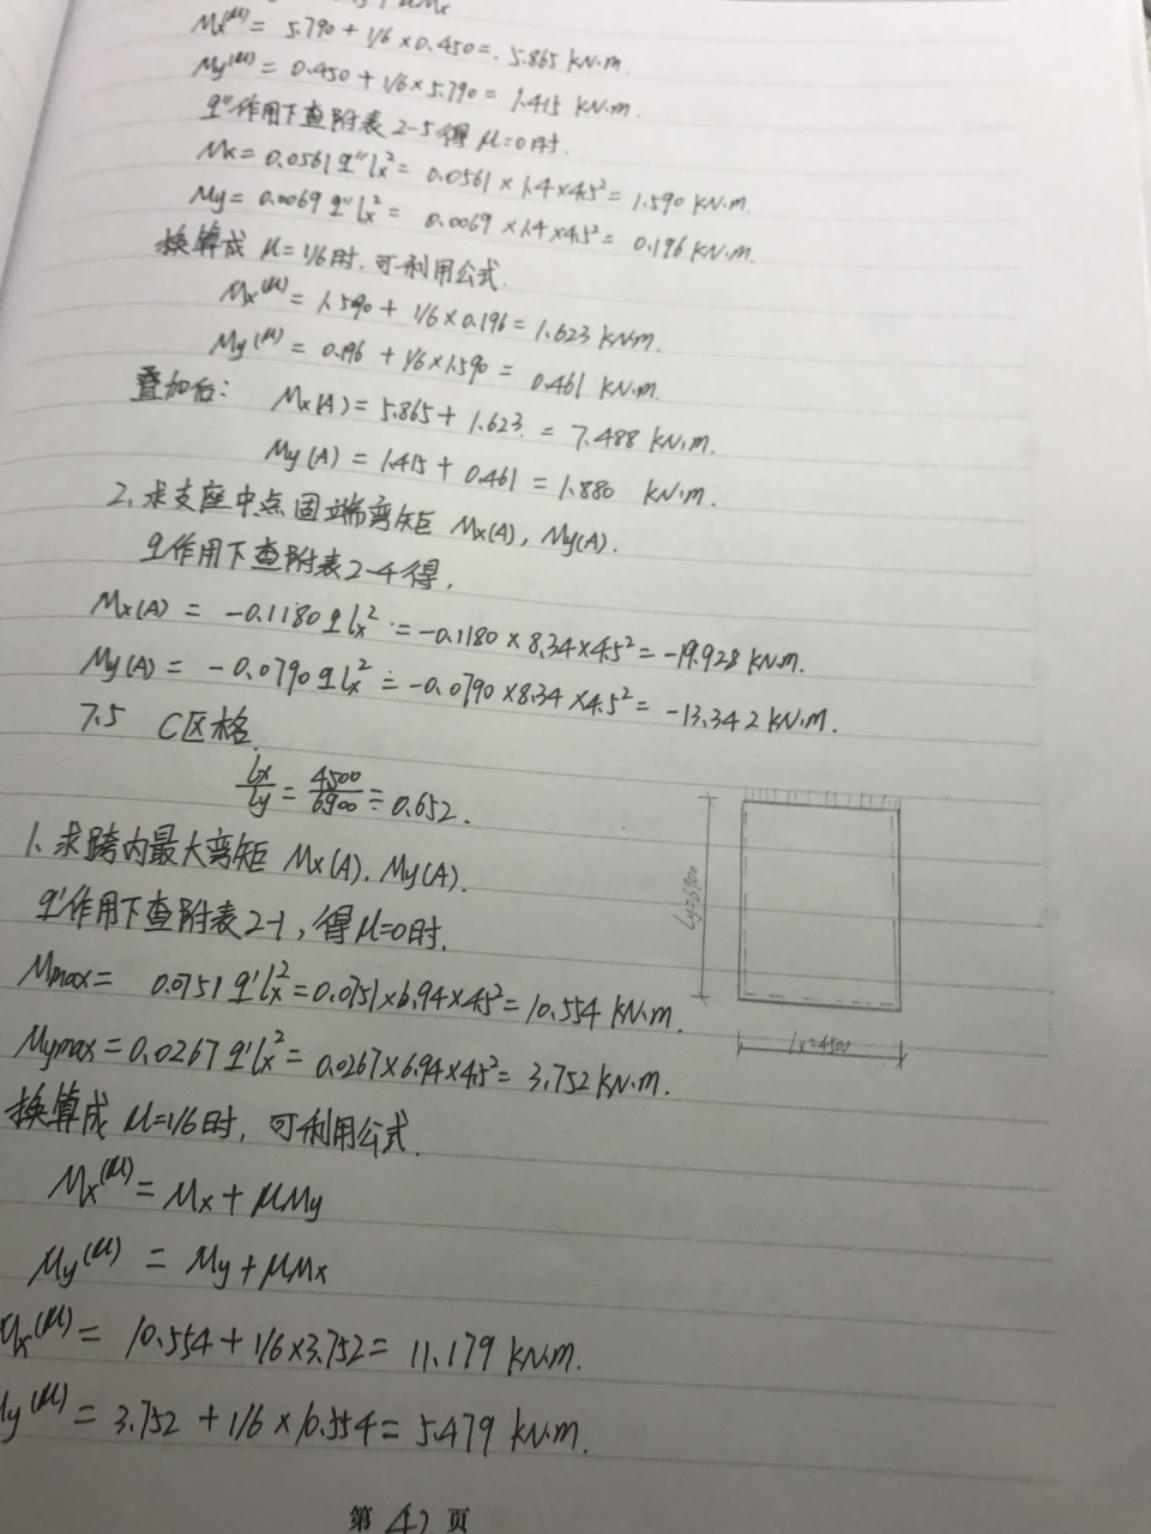 μMx
Mx(μ) = 5.790 + 1/6 × 0.450 = 5.865 kN·m.
My(μ) = 0.450 + 1/6 × 5.790 = 1.415 kN·m.
q''作用下查附表2-5得 μ=0时.
Mx = 0.0561 q''lx² = 0.0561 × 1.4 × 4.5² = 1.590 kN·m.
My = 0.0069 q''lx² = 0.0069 × 1.4 × 4.5² = 0.196 kN·m.
换算成 μ=1/6时, 可利用公式.
Mx(μ) = 1.590 + 1/6 × 0.196 = 1.623 kN·m.
My(μ) = 0.196 + 1/6 × 1.590 = 0.461 kN·m.
叠加后: Mx(A) = 5.865 + 1.623 = 7.488 kN·m.
My(A) = 1.415 + 0.461 = 1.880 kN·m.
2. 求支座中点固端弯矩 Mx(A), My(A).
q作用下查附表2-4得,
Mx(A) = -0.1180 q lx² = -0.1180 × 8.34 × 4.5² = -19.928 kN·m.
My(A) = -0.0790 q lx² = -0.0790 × 8.34 × 4.5² = -13.342 kN·m.
7.5 C区格.
lx/ly = 4500/6900 = 0.652.
1. 求跨内最大弯矩 Mx(A). My(A).
q'作用下查附表2-1, 得μ=0时.
Mmax = 0.0751 q'lx² = 0.0751×6.94×4.5² = 10.554 kN·m.
Mymax = 0.0267 q'lx² = 0.0267×6.94×4.5² = 3.752 kN·m.
ly=6900
lx=4500
换算成 μ=1/6时, 可利用公式.
Mx(μ) = Mx + μMy
My(μ) = My + μMx
Mx(μ) = 10.554 + 1/6×3.752 = 11.179 kN·m.
My(μ) = 3.752 + 1/6 × 10.554 = 5.479 kN·m.
第 42 页